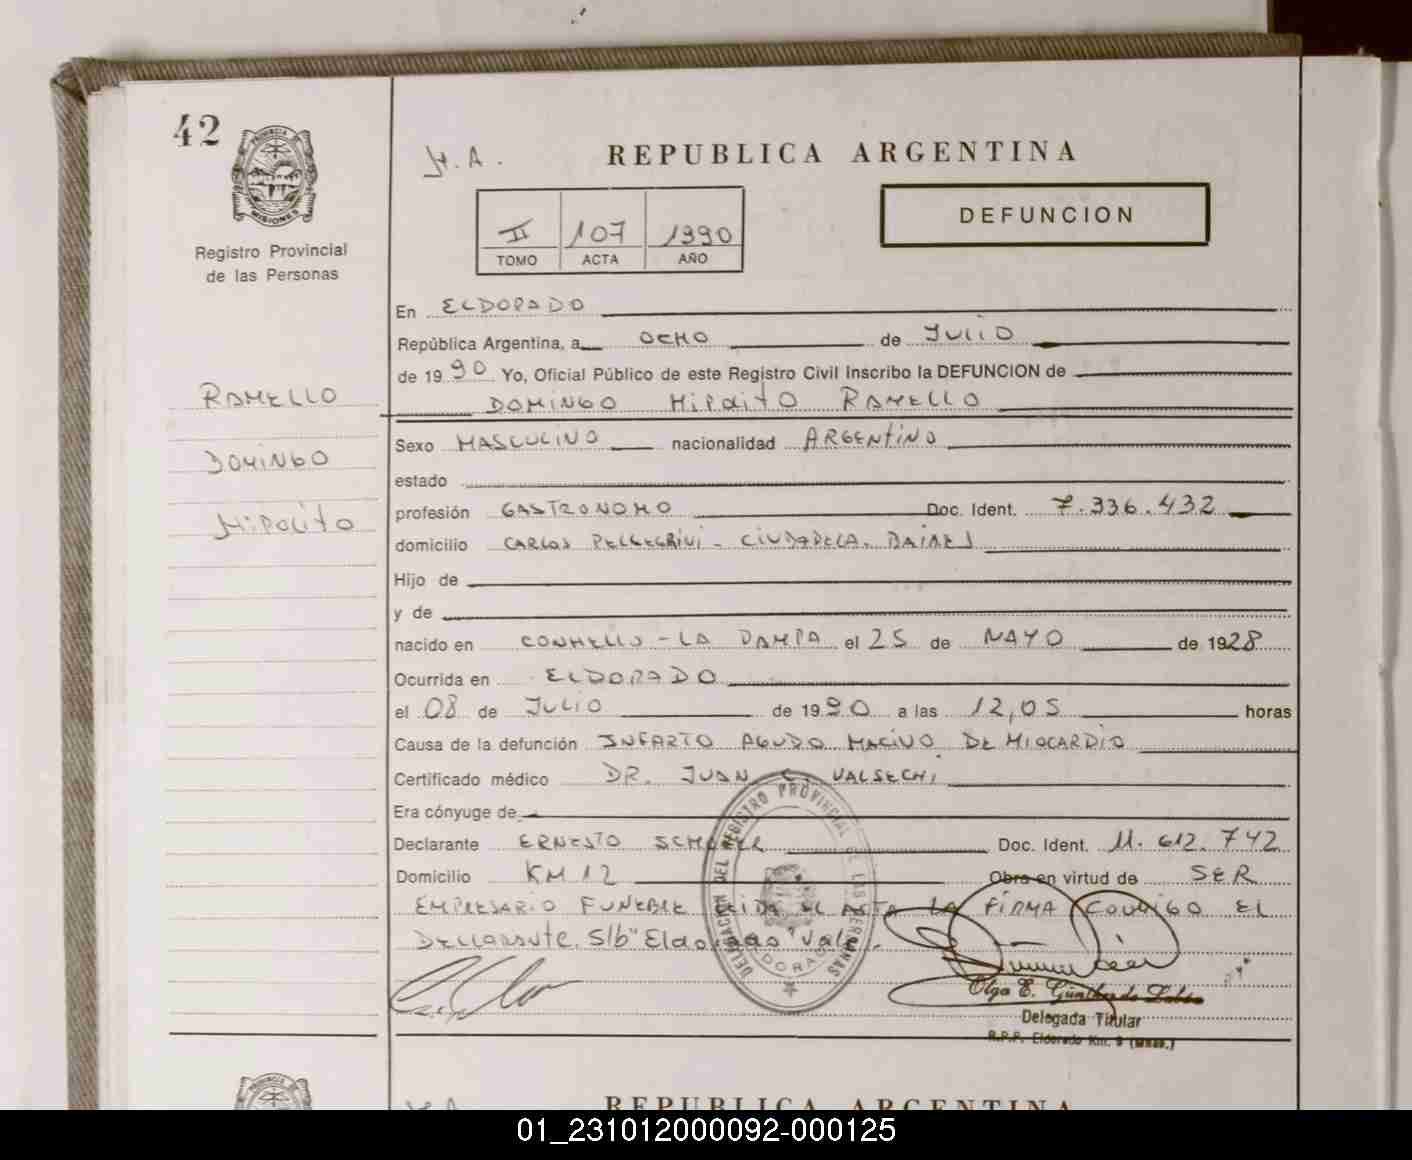 42
PROVINCIA DE
MISIONES
Registro Provincial
de las Personas
RAMELLO
DOMINGO
HIPOLITO
H.A.
REPUBLICA ARGENTINA
DEFUNCION
II 107 1990
TOMO ACTA AÑO
En ELDORADO
República Argentina, a OCHO de JULIO
de 1990 Yo, Oficial Público de este Registro Civil Inscribo la DEFUNCION de
DOMINGO HIPOLITO RAMELLO
Sexo MASCULINO nacionalidad ARGENTINO
estado
profesión GASTRONOMO Doc. Ident. 7.336.432
domicilio CARLOS PELLEGRINI - CIUDADELA. BAIRES
Hijo de
y de
nacido en CONHELLO - LA PAMPA el 25 de MAYO de 1928
Ocurrida en ELDORADO
el 08 de JULIO de 1990 a las 12,05 horas
Causa de la defunción INFARTO AGUDO MACIVO DE MIOCARDIO
Certificado médico DR. JUAN C. VALSECHI
Era cónyuge de
Declarante ERNESTO Doc. Ident. 11.612.742
Domicilio KM 12 Obra en virtud de SER
EMPRESARIO FUNEBRE LEIDA EL ACTA LA FIRMA CONMIGO EL
DECLARANTE. S/b "Eldorado Vale.
DELEGACION DEL REGISTRO PROVINCIAL DE LAS PERSONAS
ELDORADO
Olga E. Günther de
Delegada Titular
R.P.P. Eldorado Km. 9 (Mnes.)
REPUBLICA ARGENTINA
01_231012000092-000125